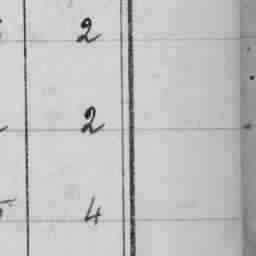 2
2
4